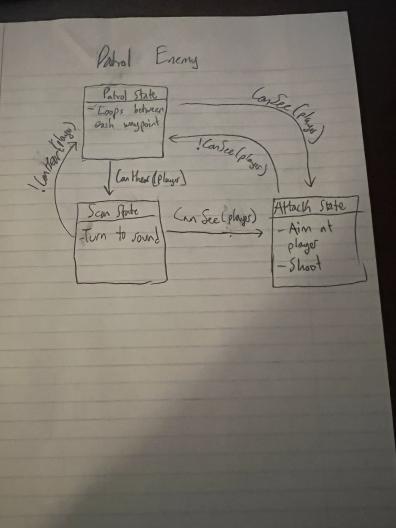 Patrol Enemy
Patrol State
- Loops between
each waypoint
CanSee(player)
!CanSee(player)
!CanHear(player)
CanHear(player)
Scan State
- Turn to sound
CanSee(player)
Attack State
- Aim at
player
- Shoot